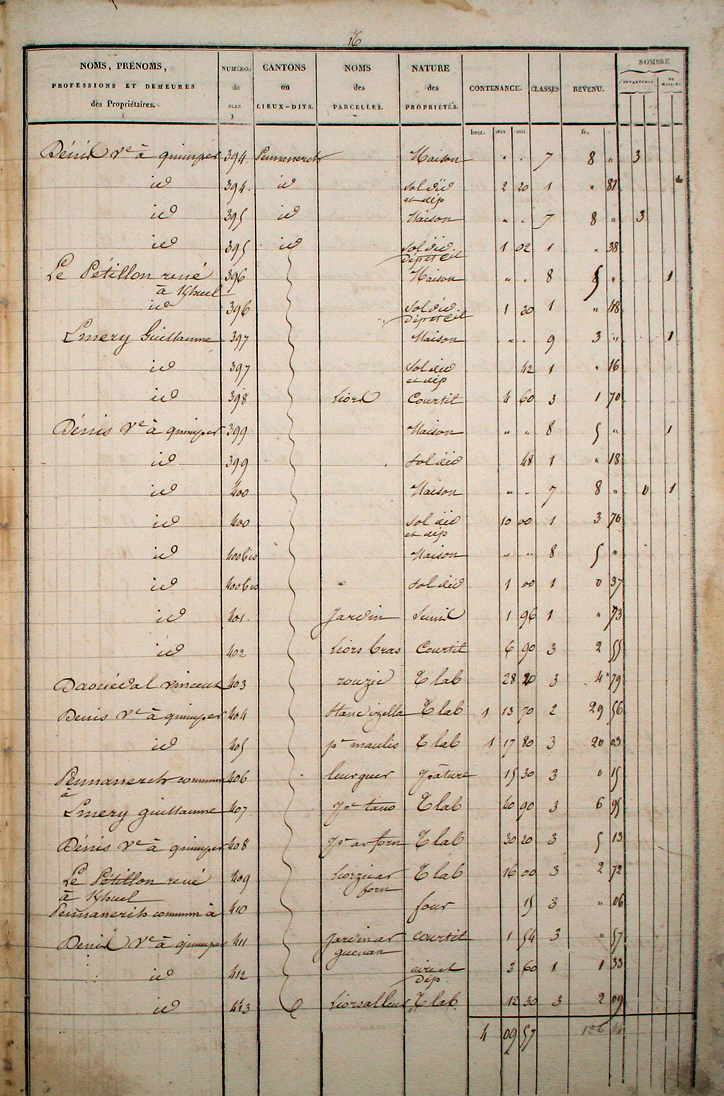 16
NOMS, PRÉNOMS, PROFESSIONS ET DEMEURES des Propriétaires. NUMÉROS de PLAN CANTONS ou LIEUX-DITS. NOMS des PARCELLES. NATURE des PROPRIÉTÉS. CONTENANCE. CLASSES REVENU. NOMBRE
hect. ares cent. fr.
Dénis Ve à quimper 394 Penmenerch Maison " " 7 8 " 3
id 394 id sol did et dép 2 20 1 " 81
id 395 id Maison " " 7 8 " 3
id 395 id sol did dép et cil 1 02 1 " 38
Le Pétillon rené à Khuel 396 Maison " " 8 5 " 1
id 396 sol did dép et cil 1 30 1 " 48
Emery Guillaume 397 Maison " " 9 3 " 1
id 397 sol did et dép 42 1 " 16
id 398 Liors Courtil 4 60 3 1 70
Dénis Ve à quimper 399 Maison " " 8 5 " 1
id 399 sol did 48 1 " 18
id 400 Maison " " 7 8 " 0 1
id 400 sol did et dép 10 00 1 3 70
id 400 bis Maison " " 8 5 "
id 400 bis sol did 1 00 1 0 37
id 401 Jardin 1 96 1 " 73
id 402 Liors bras Courtil 6 90 3 2 55
vincent 403 rouzic T lab 28 20 3 4 79
Denis Ve à quimper 404 izella T lab 1 13 70 2 29 56
id 405 pc maulis T lab 1 17 80 3 20 03
Penmanerch commun à 406 leurguer Pâture 15 30 3 0 15
Emery guillaume 407 T lab 40 90 3 6 95
Dénis Ve à quimper 408 Pc ar forn T lab 30 20 3 5 13
Le Pétillon rené à Khuel 409 Liorziar forn T lab 16 00 3 2 72
Penmanerch commun à 410 four 15 3 " 06
Denis Ve à quimper 411 Jardin ar Courtil 1 54 3 " 57
id 412 aire et dép 3 60 1 1 33
id 413 T lab 12 30 3 2 09
4 09 57 126